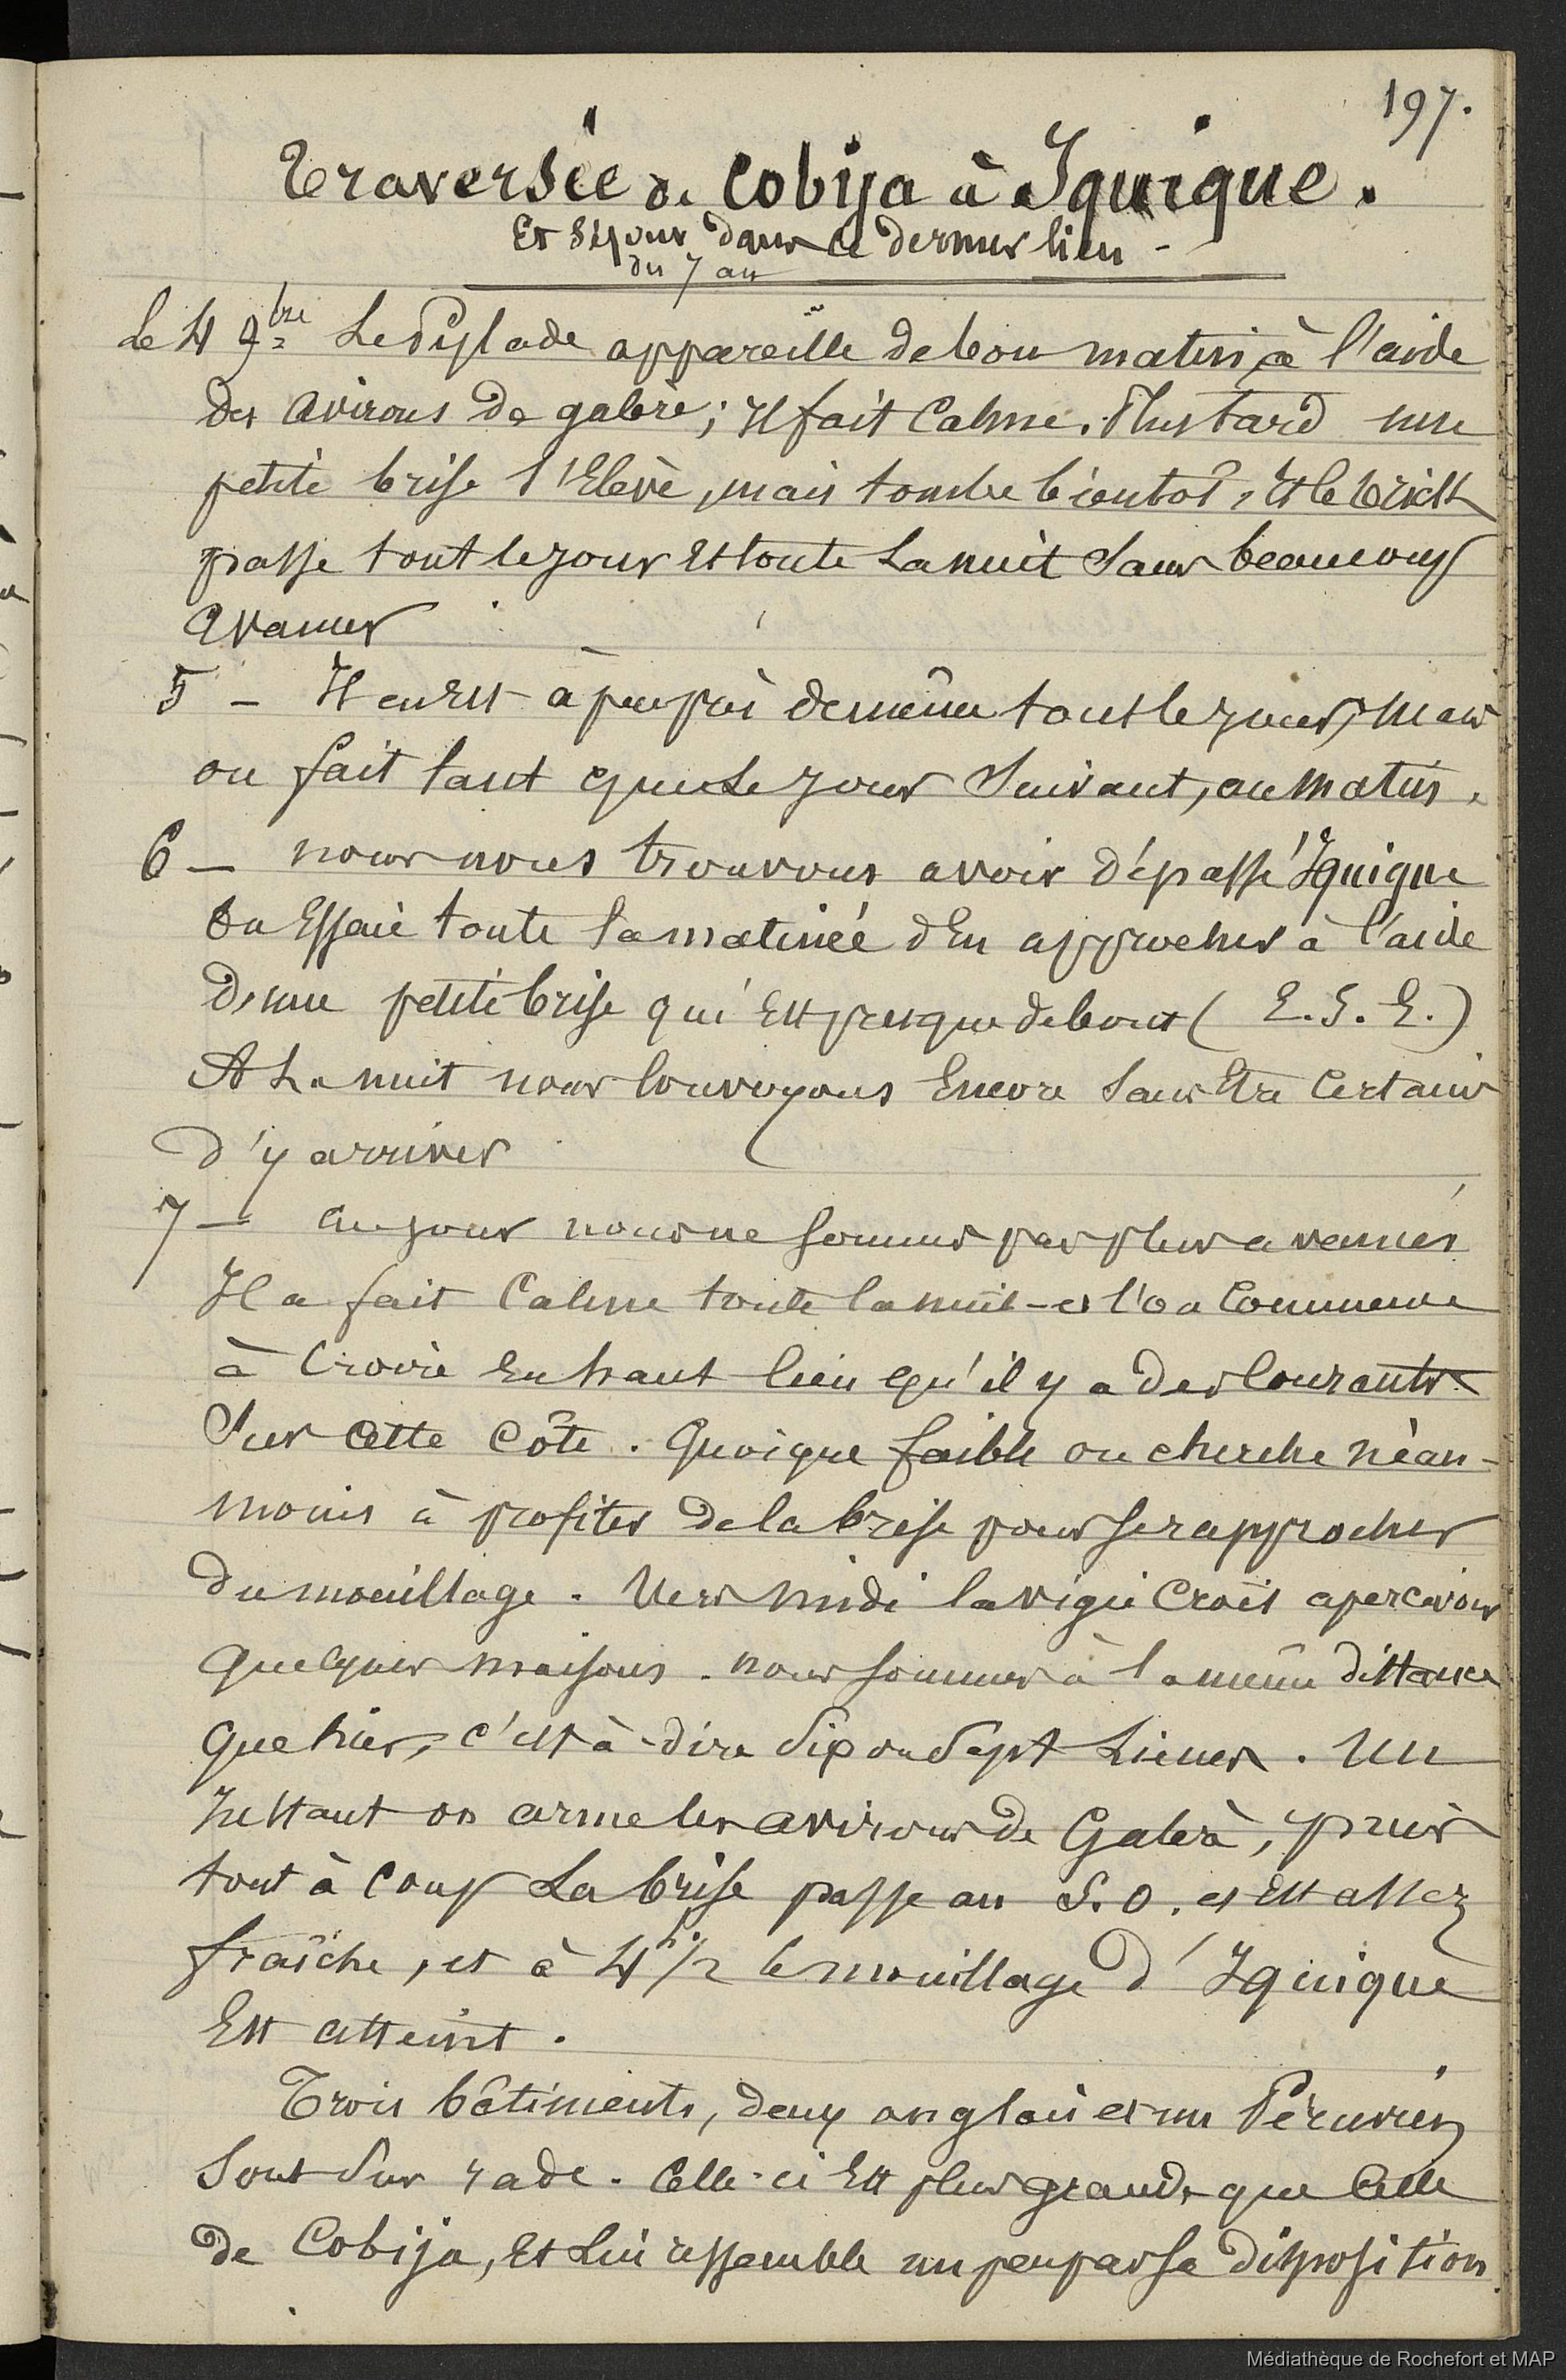 197.
Traversée de Cobija à Iquique.
Et Séjour dans ce dernier lieu -
du 7 au
Le 4 9bre Le Pylade appareille de bon matin à l'aide
des avirons de galère ; Il fait Calme. Plus tard une
petite brise s'Elève, mais tombe bientôt, Et le brick
passe tout le jour Et toute La nuit Sans beaucoup
avancer
5 - Il en Est à peu près de même tout le jour, mais
on fait tant que Le jour Suivant, au matin,
6 - nous nous trouvons avoir dépassé Iquique
On Essaie toute la matinée d'En approcher à l'aide
d'une petite brise qui Est presque debout ( E. S. E. )
A La nuit nous louvoyons Encore Sans Etre Certains
d'y arriver
7 - au jour nous ne sommes pas plus avancés
Il a fait Calme toute la nuit - et l'on Commence
à Croire En haut lieu qu'il y a des Courants
Sur Cette Côte. Quoique faible on cherche néan-
moins à profiter de la brise pour se rapprocher
du mouillage. Vers midi la vigie Croit apercevoir
quelques maisons. nous sommes à la même distance
que hier, c'est à-dire Six ou Sept Lieues. Un
Instant on arme les avirons de Galère, puis
tout à coup La brise passe au S. O. et Est assez
fraîche, et à 4h 1/2 le mouillage d'Iquique
Est atteint.
Trois bâtiments, deux anglais et un Péruvien
Sont Sur rade. Celle-ci Est plus grande que Celle
de Cobija, Et Lui ressemble un peu par sa disposition
Médiathèque de Rochefort et MAP